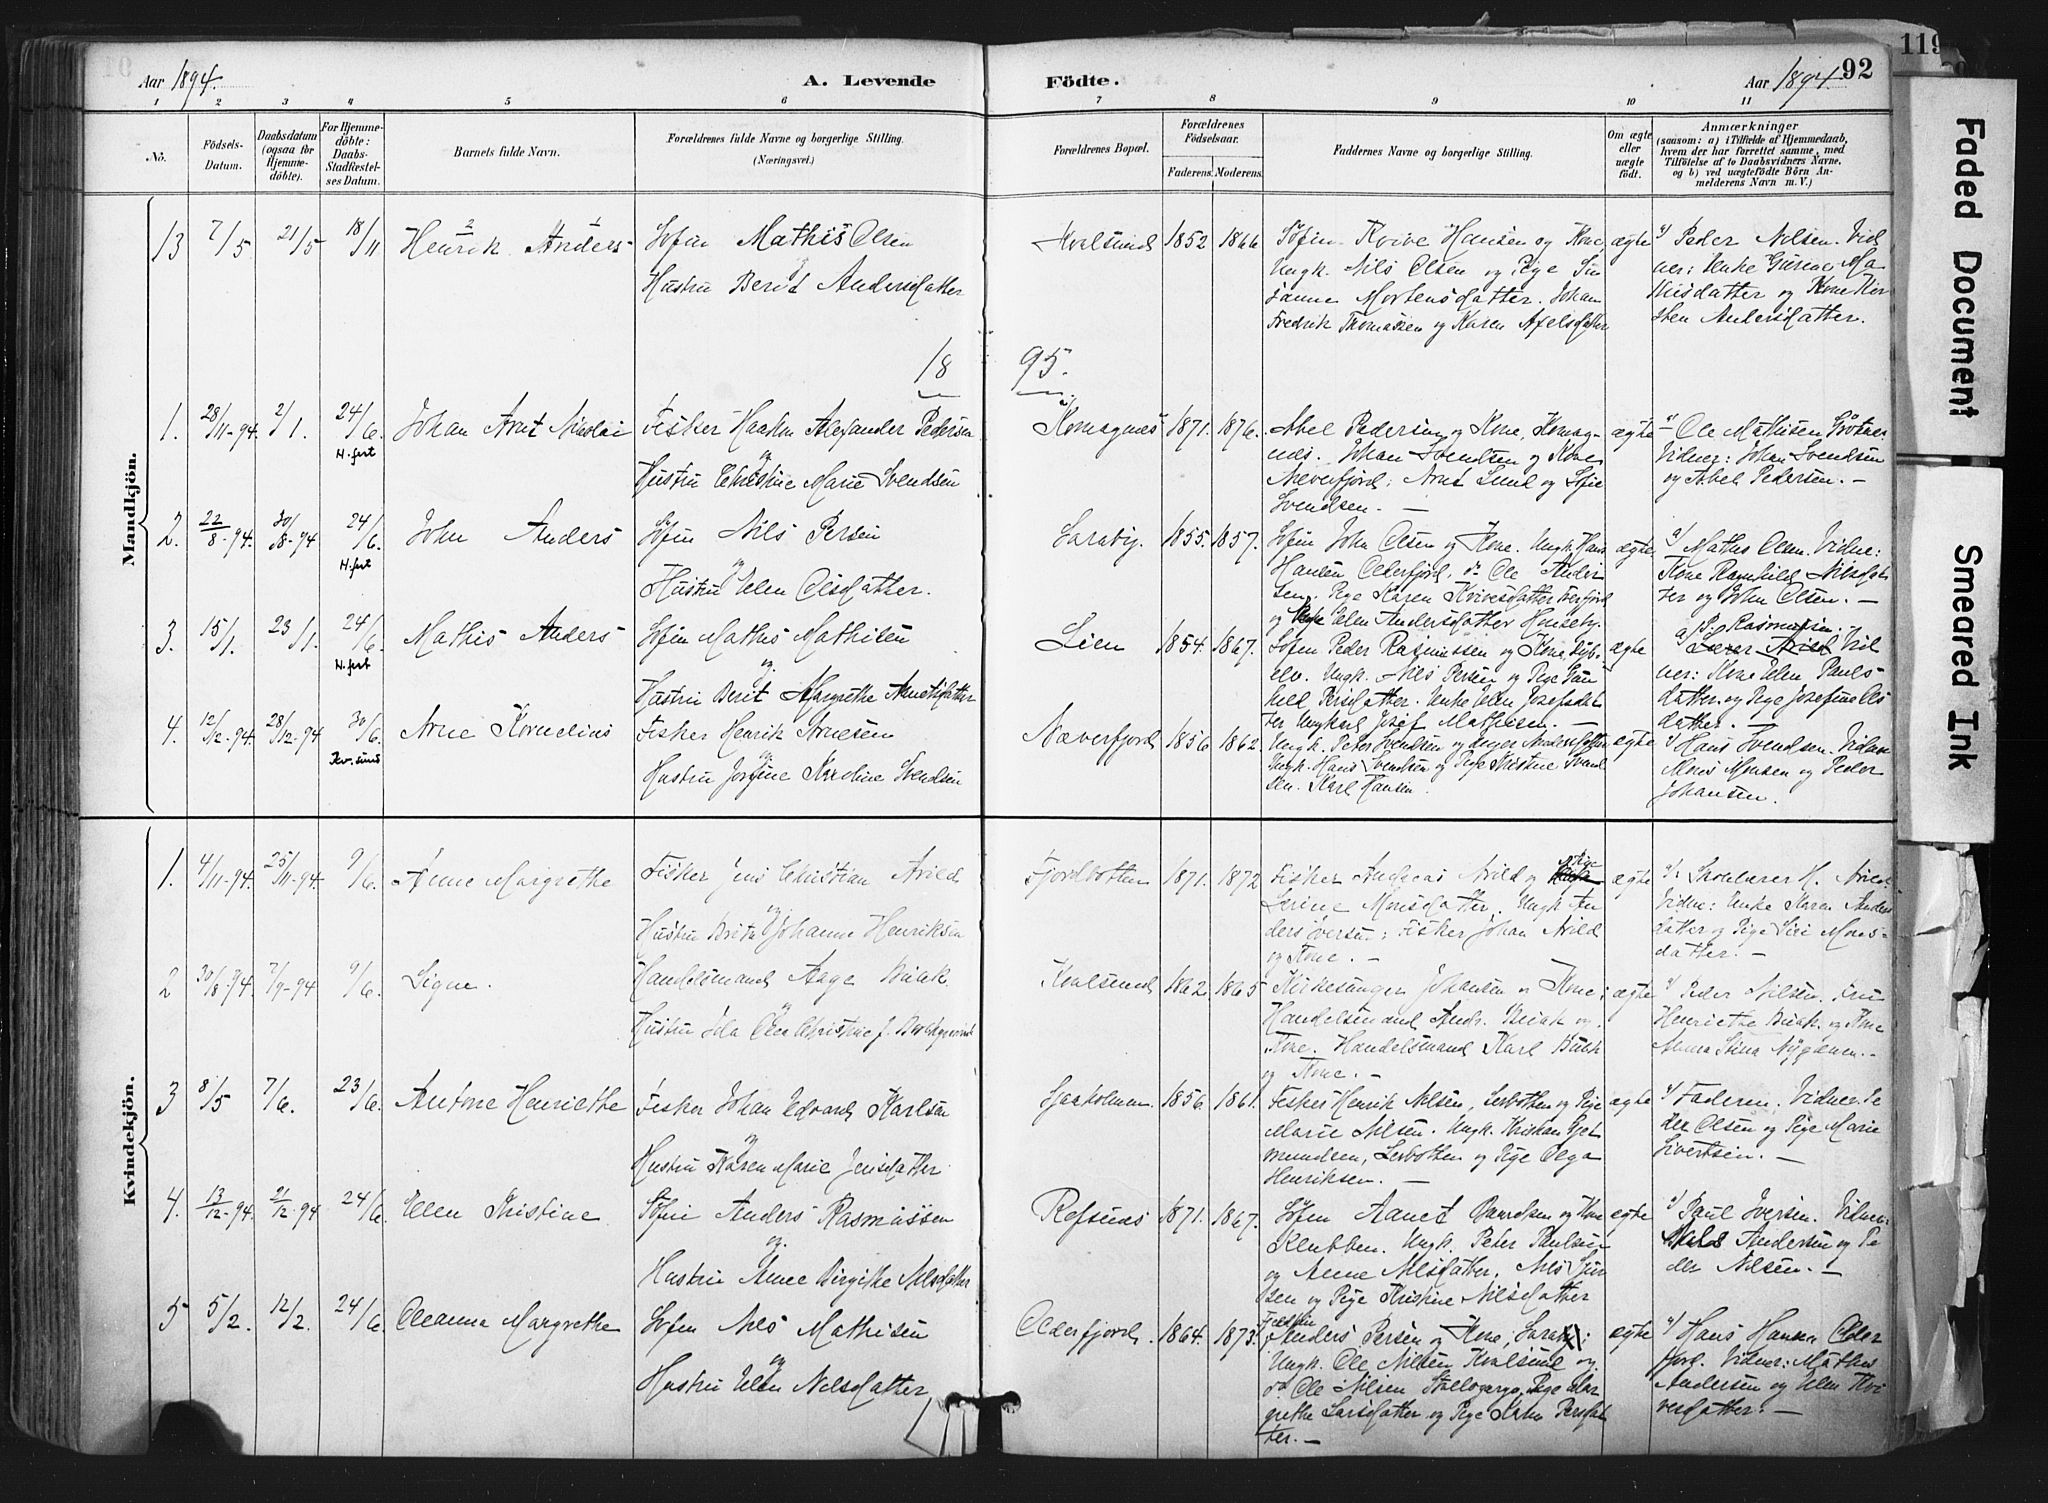 119
92
Aar 1894.
A. Levende
Födte.
Aar 1894.
1 2 3 4 5 6 7 8 9 10 11
No.
Födsels-
Datum.
Daabsdatum
(ogsaa for
Hjemme-
döbte).
For Hjemme-
döbte:
Daabs-
Stadfæstel-
ses Datum.
Barnets fulde Navn.
Forældrenes fulde Navne og borgerlige Stilling.
(Næringsvei.)
Forældrenes Bopæl.
Forældrenes
Födselsaar.
Faderens. Moderens.
Faddernes Navne og borgerlige Stilling.
Om ægte
eller
uægte
födt.
Anmærkninger
(saasom: a) i Tilfælde af Hjemmedaab,
hvem der har forrettet samme, med
Tilföielse af to Daabsvidners Navne,
og b) ved uægtefödte Börn An-
melderens Navn m. V.)
Mandkjön.
13 7/5 21/5 18/11 Henrik Anders
Søfin Mathis Olsen
Hustru Berit Andersdatter
Kvalsund 1852 1866
Søfin Kvive Hansen og Kone,
Ungk. Nils Olsen og Pige Su
sanne Mortensdatter. Johan
Fredrik Thomassen og Karen Axelsdatter
ægte
a) Peder Nilsen. Vid
ner: Enke Ma
thisdatter og Kone Kir
sten Andersdatter.
18 95.
1. 28/11-94. 2/1. 24/6. H.fest Johan Arnt Nicolai
Fisker Haakon Alexander Pedersen
og
Hustru Christine Marie Svendsen
Komagnes 1871. 1876.
Abel Pedersen og Kone, Komag-
nes. Johan Svendsen og Kone
Neverfjord; Arnt Lund og Sofie
Svendsen. —
ægte
a) Ole Mathisen
Vidner: Johan Svendsen
og Abel Pedersen. —
2. 22/8-94. 30/8-94 24/6. H.fest John Anders
Søfin Nils Persen
og
Hustru Elen Olsdatter.
Saraby. 1855. 1857.
Søfin John Olsen og Kone. Ungk. Hans
Hansen Olderfjord, do Ole Ander
sen. Pige Karen Kvivesdatter
og Elen Andersdatter
ægte
a) Mathis Olsen. Vidne:
Kone Ragnhild Nilsdat
ter og John Olsen. —
3. 15/1. 23/1. 24/6. H.fest Mathis Anders
Søfin Mathis Mathisen
og
Hustru Berit Margrethe
Lien 1854. 1867.
Søfin Peder Rasmussen og Kone,
elv. Ungk. Nils Persen og Pige
Persdatter. Enke Elen Josefsdat
ter Ungkarl Josef Mathisen. —
ægte
a) P. Rasmussen.
Lærer Arild Vid
ner: Kone Elen Pauls-
datter og Pige Josefine Ols
datter. —
4. 12/12-94. 28/12-94 30/6. Kv.sund Arne Kornelius
Fisker Henrik Arnesen
og
Hustru Josefine Karoline Svendsen
Næverfjord 1856 1862.
Ungk. Peter Svendsen og
Ungk. Hans Svendsen og Pige Kristine Svend
sen. Karl Hansen.
ægte
a) Hans Svendsen. Vidner
Mons Monsen og Peder
Johansen.
Kvindekjön.
1. 4/11-94. 25/11-94. 9/6. Anne Margrethe
Fisker Jens Christian Arild
og
Hustru Brita Johanne Henriksen
Fjordbotten 1871. 1872
Fisker Andreas Arild og Pige
Serine Monsdatter. Ungk. An
ders Iversen; Fisker Johan Arild
og Kone. —
ægte
a) Skolelærer H. Arild.
Vidne: Enke Karen Anders
datter og Pige Siri Mons-
datter. —
2 30/8-94. 7/9-94 9/6. Signe.
Handelsmand Aage Buak
og
Hustru Ida Olea Christine J.
Kvalsund 1862 1865
Kirkesanger Johansen og Kone;
Handelsmand Andr. Buak og
Kone. Handelsmand Karl Buak
og Kone. —
ægte
a) Peder Nilsen. Fru
Henriette Buak og Kone
Anna Stina Nygaard. —
3 8/5 7/6. 23/6. Antone Henriette
Fisker Johan Edvard Karlsen
og
Hustru Karen Marie Jensdatter
1856. 1861.
Fisker Henrik Nilsen, Lerbotten og Pige
Marie Nilsen. Ungk. Kristian Gjet
mundsen, Lerbotten og Pige Olga
Henriksen. —
ægte
a) Faderen. Vidner: Pe
der Olsen og Pige Marie
Sivertsen. —
4. 13/12-94. 21/12-94 24/6. Elen Kristine
Søfin Anders Rasmussen
og
Hustru Anne Birgithe Nilsdatter
Refsnes 1871. 1867.
Søfin Aanet og Kone
Klubben. Ungk. Peter Paulsen
og Anne Nilsdatter. Nils Iver
sen og Pige Kristine Nilsdatter
ægte
a) Paul Iversen. Vidner:
Nils Andersen og Pe
der Nilsen. —
5 5/2. 12/2. 24/6. Oleanna Margrethe
Søfin Nils Mathisen
og
Hustru Elen Nilsdatter
Olderfjord. 1864. 1873.
Anders Persen og Kone,
Ungk. Ole Nilsen Kvalsund og
do Ole Nilsen Pige Mar
grethe Larsdatter og Pige Karen Persdat
ter. —
ægte
a) Hans Hansen Older
fjord. Vidner: Mathis
Andersen og Elen Kvi
vesdatter. —
Faded Document
Smeared Ink